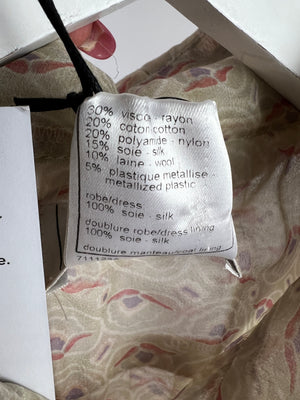 30% visco - rayon
20% coton cotton
20% polyamide - nylon
15% soie - silk
10% laine - wool
5% plastique metallise -
metallized plastic
robe/dress:
100% soie - silk
doublure robe/dress lining
100% soie - silk
doublure manteau/coat lining
e.